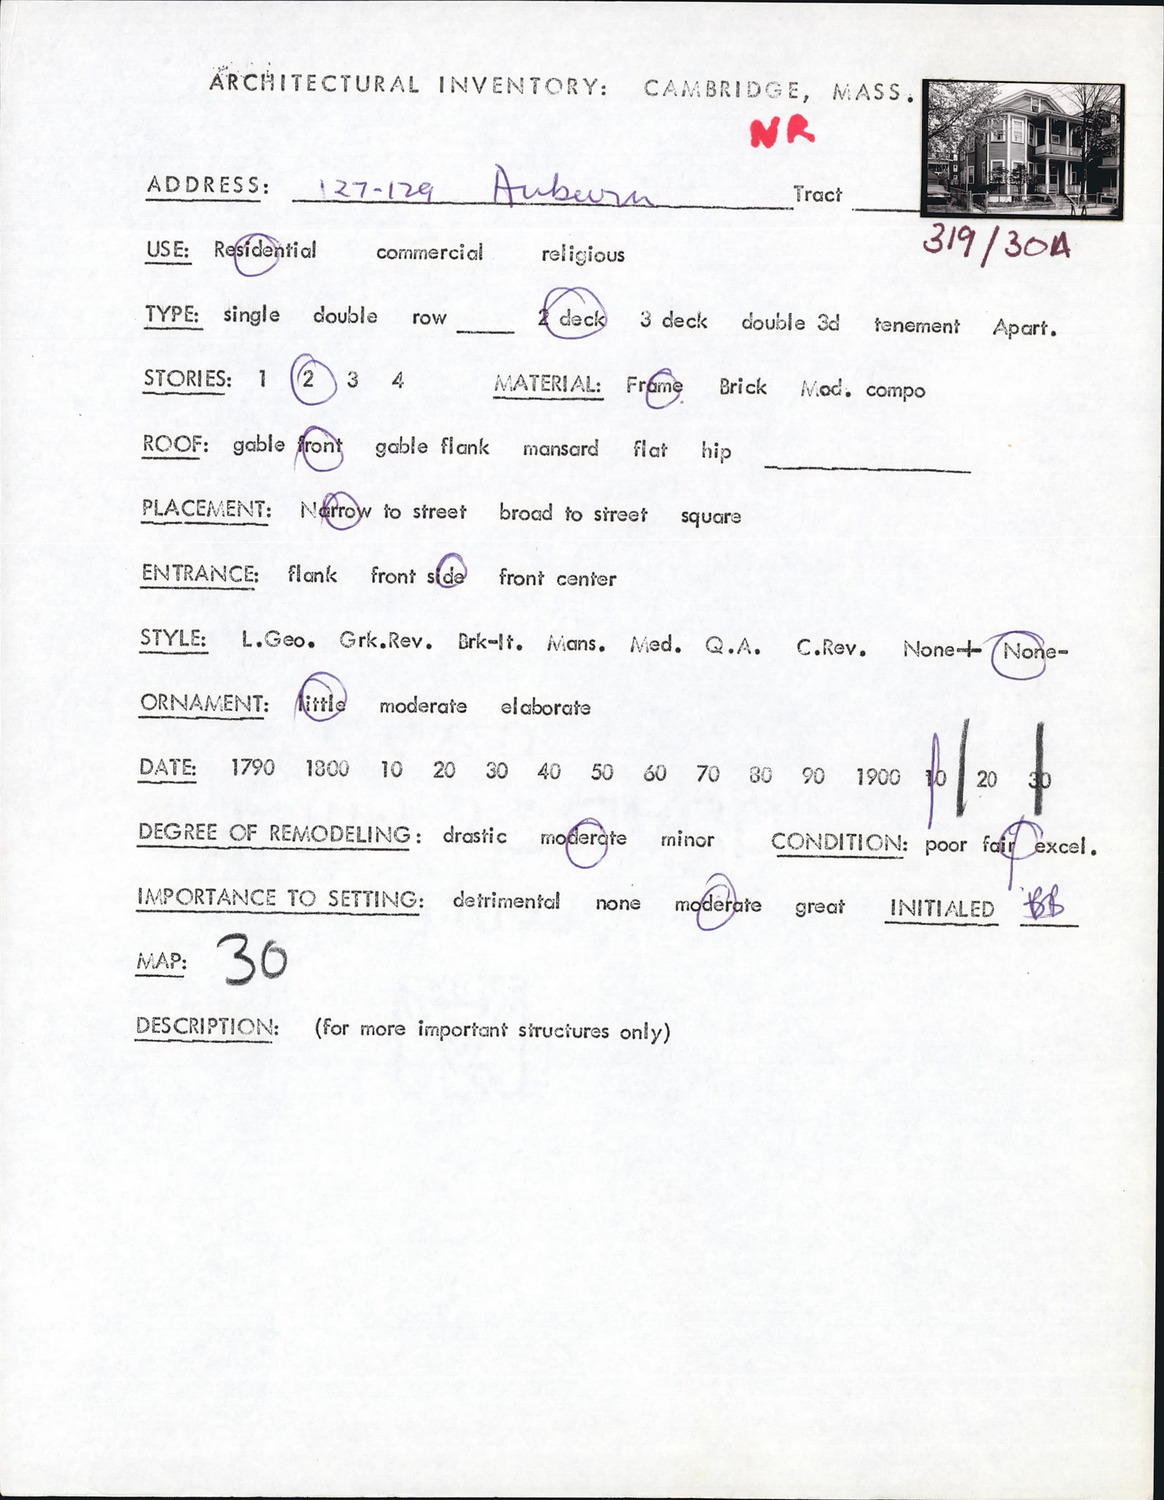 ARCHITECTURAL INVENTORY: CAMBRIDGE, MASS.
NR
ADDRESS: 127-129 Auburn Tract
319/30A
USE: Residential commercial religious
TYPE: single double row ____ 2 deck 3 deck double 3d tenement Apart.
STORIES: 1 2 3 4 MATERIAL: Frame Brick Mod. compo
ROOF: gable front gable flank mansard flat hip
PLACEMENT: Narrow to street broad to street square
ENTRANCE: flank front side front center
STYLE: L.Geo. Grk.Rev. Brk-It. Mans. Med. Q.A. C.Rev. None+ None-
ORNAMENT: little moderate elaborate
DATE: 1790 1800 10 20 30 40 50 60 70 80 90 1900 10 20 30
DEGREE OF REMODELING: drastic moderate minor CONDITION: poor fair excel.
IMPORTANCE TO SETTING: detrimental none moderate great INITIALED BB
MAP: 30
DESCRIPTION: (for more important structures only)